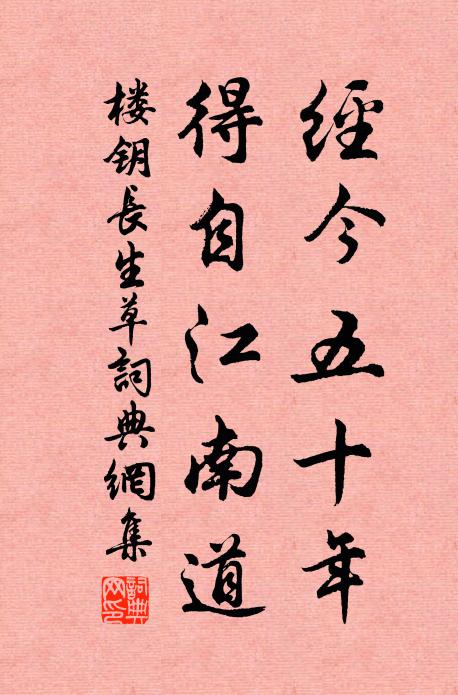 經今五十年
得自江南道
楼钥長生草詞典網集
詞典
网印